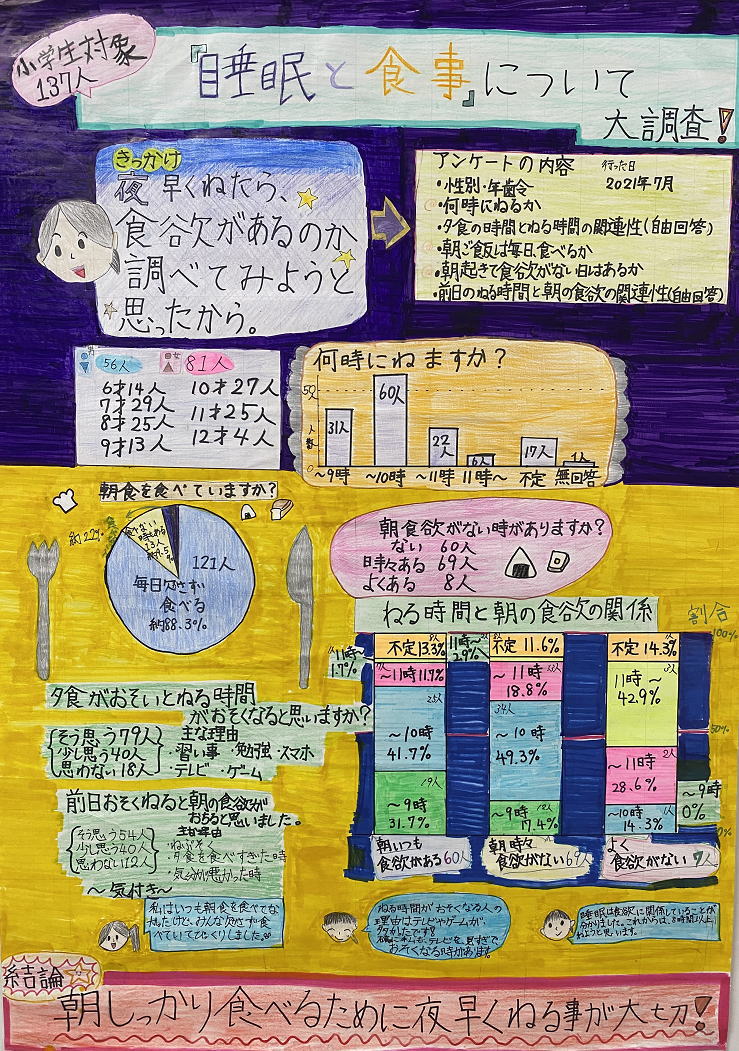 小学生対象
137人
『睡眠と食事』について
大調査!
きっかけ
夜早くねたら、
食欲があるのか
調べてみようと
思ったから。
アンケートの内容 行った日
・性別・年齢 2021年7月
・何時にねるか
・夕食の時間とねる時間の関連性(自由回答)
・朝ご飯は毎日食べるか
・朝起きて食欲がない日はあるか
・前日のねる時間と朝の食欲の関連性(自由回答)
男 56人 女 81人
6才14人 10才27人
7才29人 11才25人
8才25人 12才4人
9才13人
何時にねますか?
50人
人数
0
31人 60人 22人 6人 17人 1人
~9時 ~10時 ~11時 11時~ 不定 無回答
朝食を食べていますか?
121人
毎日欠さず
食べる
約88.3%
朝食欲がない時がありますか?
ない 60人
時々ある 69人
よくある 8人
ねる時間と朝の食欲の関係
割合
100%
50%
0%
11時~
1.7%
不定13.3%
~11時11.7%
~10時
41.7%
19人
~9時
31.7%
朝いつも
食欲がある60人
11時~
2.9%
不定11.6%
~11時
18.8%
34人
~10時
49.3%
~9時
17.4%
朝時々
食欲がない69人
不定14.3%
11時~
42.9%
~11時 2人
28.6%
~10時 1人
14.3%
~9時
0%
よく
食欲がない7人
夕食がおそいとねる時間
がおそくなると思いますか?
そう思う79人
少し思う40人
思わない18人
主な理由
・習い事・勉強・スマホ
・テレビ・ゲーム
前日おそくねると朝の食欲が
おちると思いました。
そう思う54人
少し思う40人
思わない12人
主な理由
・ねぶそく
・夕食を食べすぎた時
・気分が悪かった時
~気付き~
私はいつも朝食を食べてな
かったけど、みんな欠さず食
べていてびっくりしました。
ねる時間がおそくなる人の
理由はテレビやゲームが
多かったです。
おそくなる時があります
睡眠は食欲に関係していることが
分かりました。これからは、8時間以上
ねようと思います。
結論
朝しっかり食べるために夜早くねる事が大切!